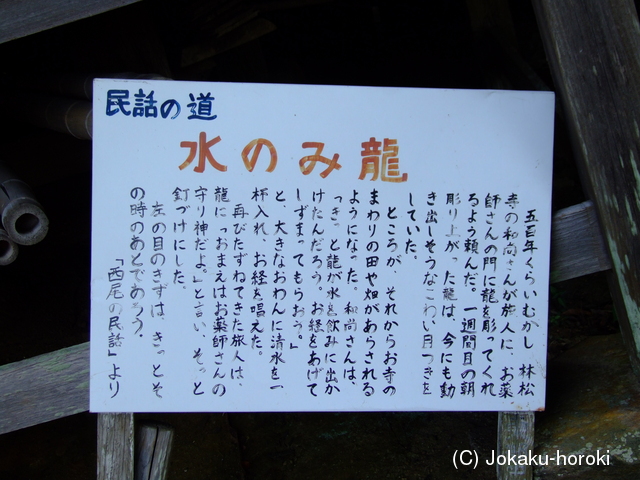 民話の道
水のみ龍
五百年くらいむかし 林松
寺の和尚さんが旅人に、お薬
師さんの門に龍を彫ってくれ
るよう頼んだ。一週間目の朝
彫り上がった龍は、今にも動
き出しそうなこわい目つきを
していた。
ところが、それからお寺の
まわりの田や畑があらされる
ようになった。和尚さんは、
「きっと龍が水を飲みに出か
けたんだろう。お経をあげて
しずまってもらおう。」
と、大きなおわんに清水を一
杯入れ、お経を唱えた。
再びたずねてきた旅人は、
龍に「おまえはお薬師さんの
守り神だよ。」と言い、そっと
釘づけにした。
左の目のきずは、きっとそ
の時のあとであろう。
「西尾の民話」より
(C) Jokaku-horoki